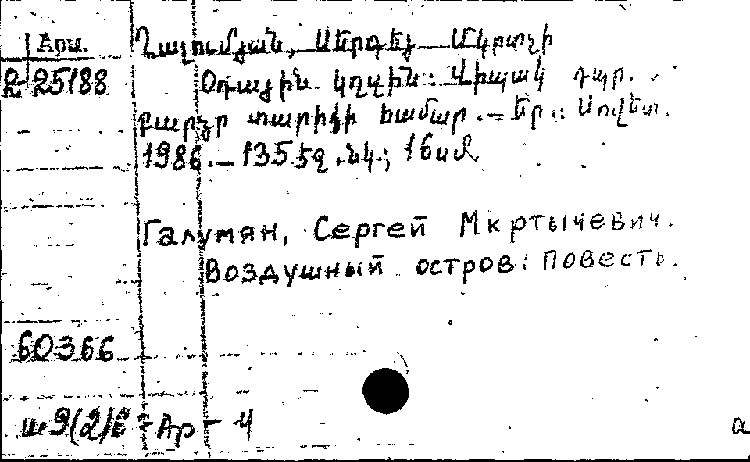 Арм.
Ղալումյան, Սերգեյ Մկրտչի
2 25188
Օդային կղզին: Վիպակ դպր.
բարձր տարիքի համար.— Եր.: Սովետ.
1986.— 135 էջ. նկ.; 16սմ
Галумян, Сергей Мкртычевич.
Воздушный остров: Повесть.
60366
Ар - 4
a